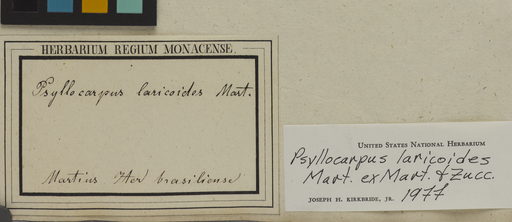 HERBARIUM REGIUM MONACENSE.
Psyllocarpus laricoides Mart.
Martius Iter brasiliense
UNITED STATES NATIONAL HERBARIUM
Psyllocarpus laricoides
Mart. ex Mart. & Zucc.
JOSEPH H. KIRKBRIDE, JR. 1977